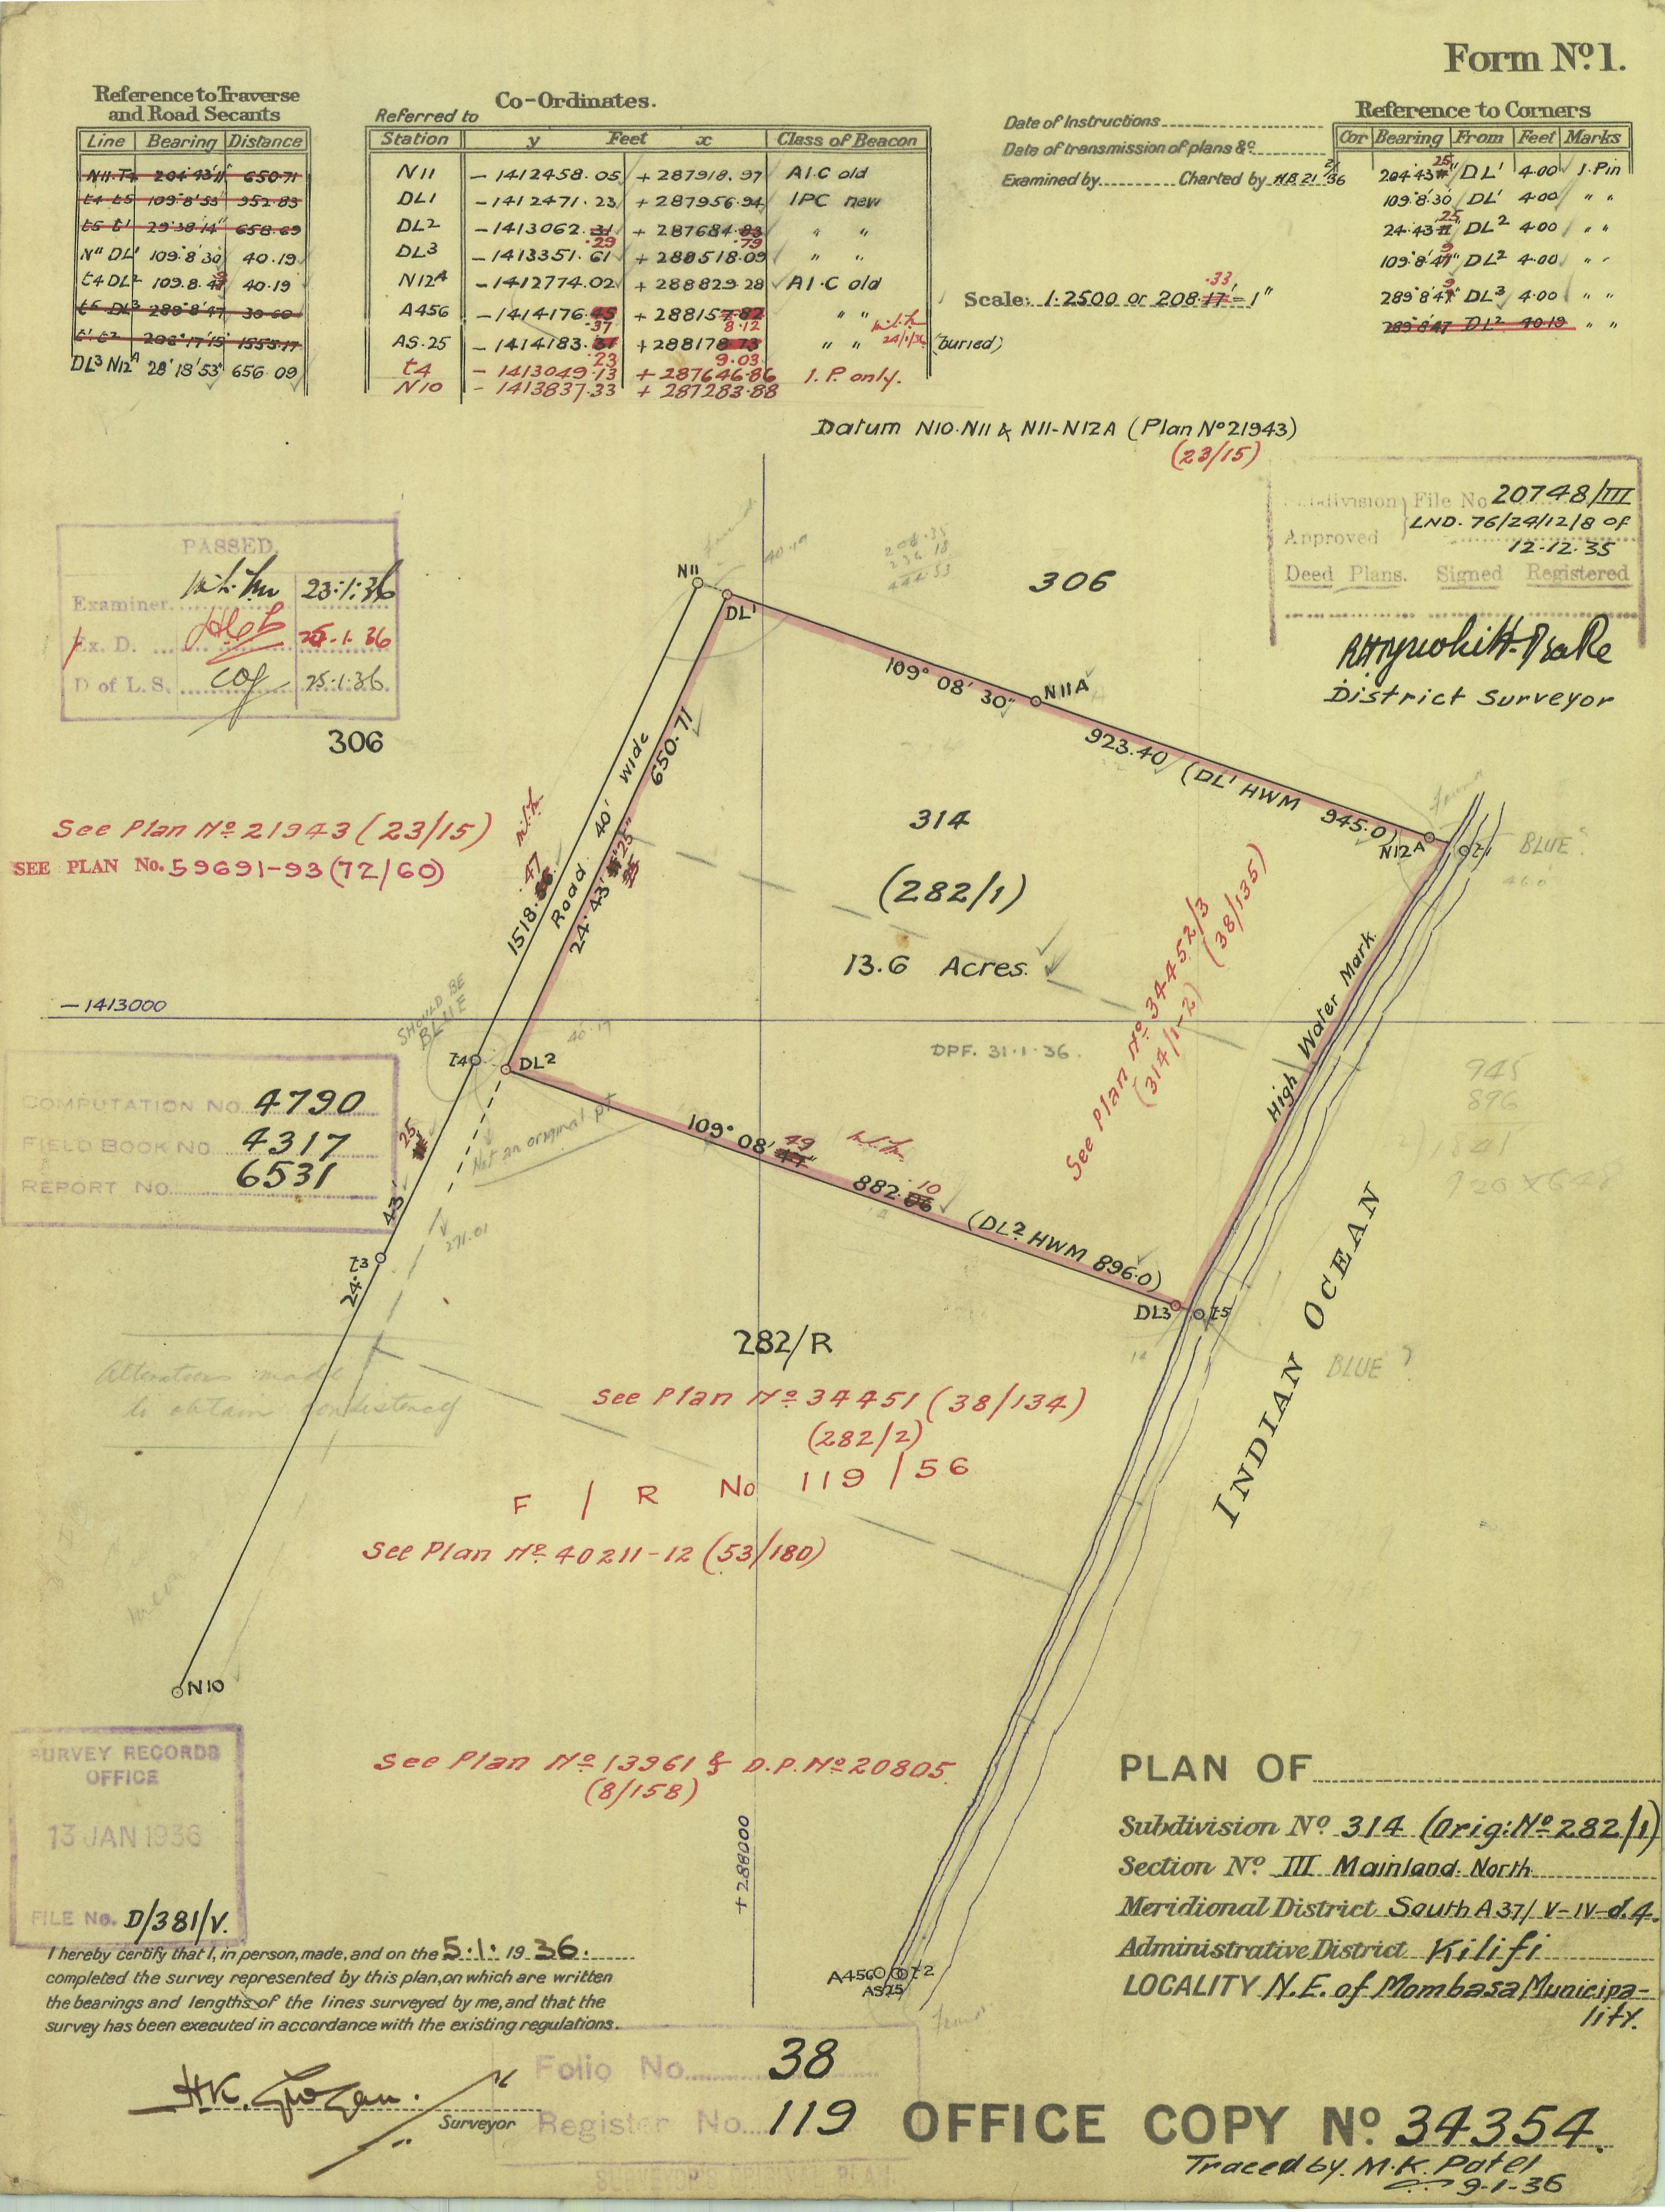 Form Nº 1.
Reference to Traverse
and Road Secants
Line Bearing Distance
N11.T4 204°43'11" 650.71
t4 t5 109°8'53" 952.83
t5 t1 29°38'14" 658.69
N" DL' 109°8'30 40.19
t4 DL2 109.8.49 40.19
t5 DL3 289°8'47 30.60
t1 t2 206°17'15 1555.17
DL3 N12A 28°18'53" 656.09
Co-Ordinates.
Referred to
Station y Feet x Class of Beacon
N11 - 1412458.05 + 287918.97 A.I.C old
DL1 - 1412471.23 + 287956.94 IPC new
DL2 - 1413062.31 + 287684.83 " "
.29 .79
DL3 - 1413351.61 + 288518.09 " "
N12A - 1412774.02 + 288829.28 A I.C old
A456 - 1414176.45 + 288157.82 " "
.37 8.12
AS.25 - 1414183.31 + 288178.73 " " (buried)
24/1/36
.23 9.03
t4 - 1413049.13 + 287646.86 I.P. only.
N10 - 1413837.33 + 287283.88
Date of Instructions
Date of transmission of plans &c
Examined by Charted by H.B 21/1/36
Scale: 1.2500 or 208.17' = 1"
.33
Reference to Corners
Cor Bearing From Feet Marks
204.43 25" DL' 4.00 I.Pin
109.8.30 DL' 4.00 " "
24.43 25 DL2 4.00 " "
109°8'49" DL2 4.00 " "
289°8'49" DL3 4.00 " "
289°8'47 DL2 40.19 " "
Datum N10.N11 & N11-N12A (Plan Nº 21943)
(23/15)
Subdivision File No 20748/III
LND. 76/24/12/8 of
Approved 12.12.35
Deed Plans. Signed Registered
District Surveyor
PASSED.
Examiner. 23.1.36
Ex. D. 25.1.36
D of L.S. 25.1.36.
306
306
N11
DL'
40.19
208.35
236.18
444.53
109° 08' 30"
N11A
923.40 (DL' HWM 945.0)
N12A
t1
BLUE?
46.0
See Plan Nº 21943 (23/15)
SEE PLAN No. 59691-93 (72/60)
1518.56
.47
Road 40' wide
650.71
24° 43' 25"
314
(282/1)
13.6 Acres.
See Plan Nº 34452/3 (38/135)
(314/1-2)
High Water Mark.
- 1413000
SHOULD BE
BLUE
40.19
t4
DL2
DPF. 31.1.36.
Not an original pt
271.01
945
896
1841
COMPUTATION NO. 4790
FIELD BOOK NO. 4317
REPORT NO. 6531
t3
24° 43' 25
109° 08' 49
882.06
10
(DL2 HWM 896.0)
DL3
t5
14
BLUE ?
INDIAN OCEAN
Alterations made
to obtain consistency
282/R
See Plan Nº 34451 (38/134)
(282/2)
F / R No 119 / 56
See Plan Nº 40211-12 (53/180)
N10
See Plan Nº 13961 & D.P. Nº 20805.
(8/158)
+ 288000
SURVEY RECORDS
OFFICE
13 JAN 1936
FILE No. D/381/V.
A456
t2
AS25
PLAN OF
Subdivision Nº 314 (Orig: Nº 282/1)
Section Nº III Mainland North
Meridional District South A37/ V-IV-d.4.
Administrative District Kilifi
LOCALITY N.E. of Mombasa Municipa-
lity.
I hereby certify that I, in person, made, and on the 5.1.1936.
completed the survey represented by this plan, on which are written
the bearings and lengths of the lines surveyed by me, and that the
survey has been executed in accordance with the existing regulations.
Surveyor
Folio No. 38
Register No. 119
SURVEYOR'S ORIGINAL PLAN
OFFICE COPY Nº 34354.
Traced by. M.K. Patel
9-1-36